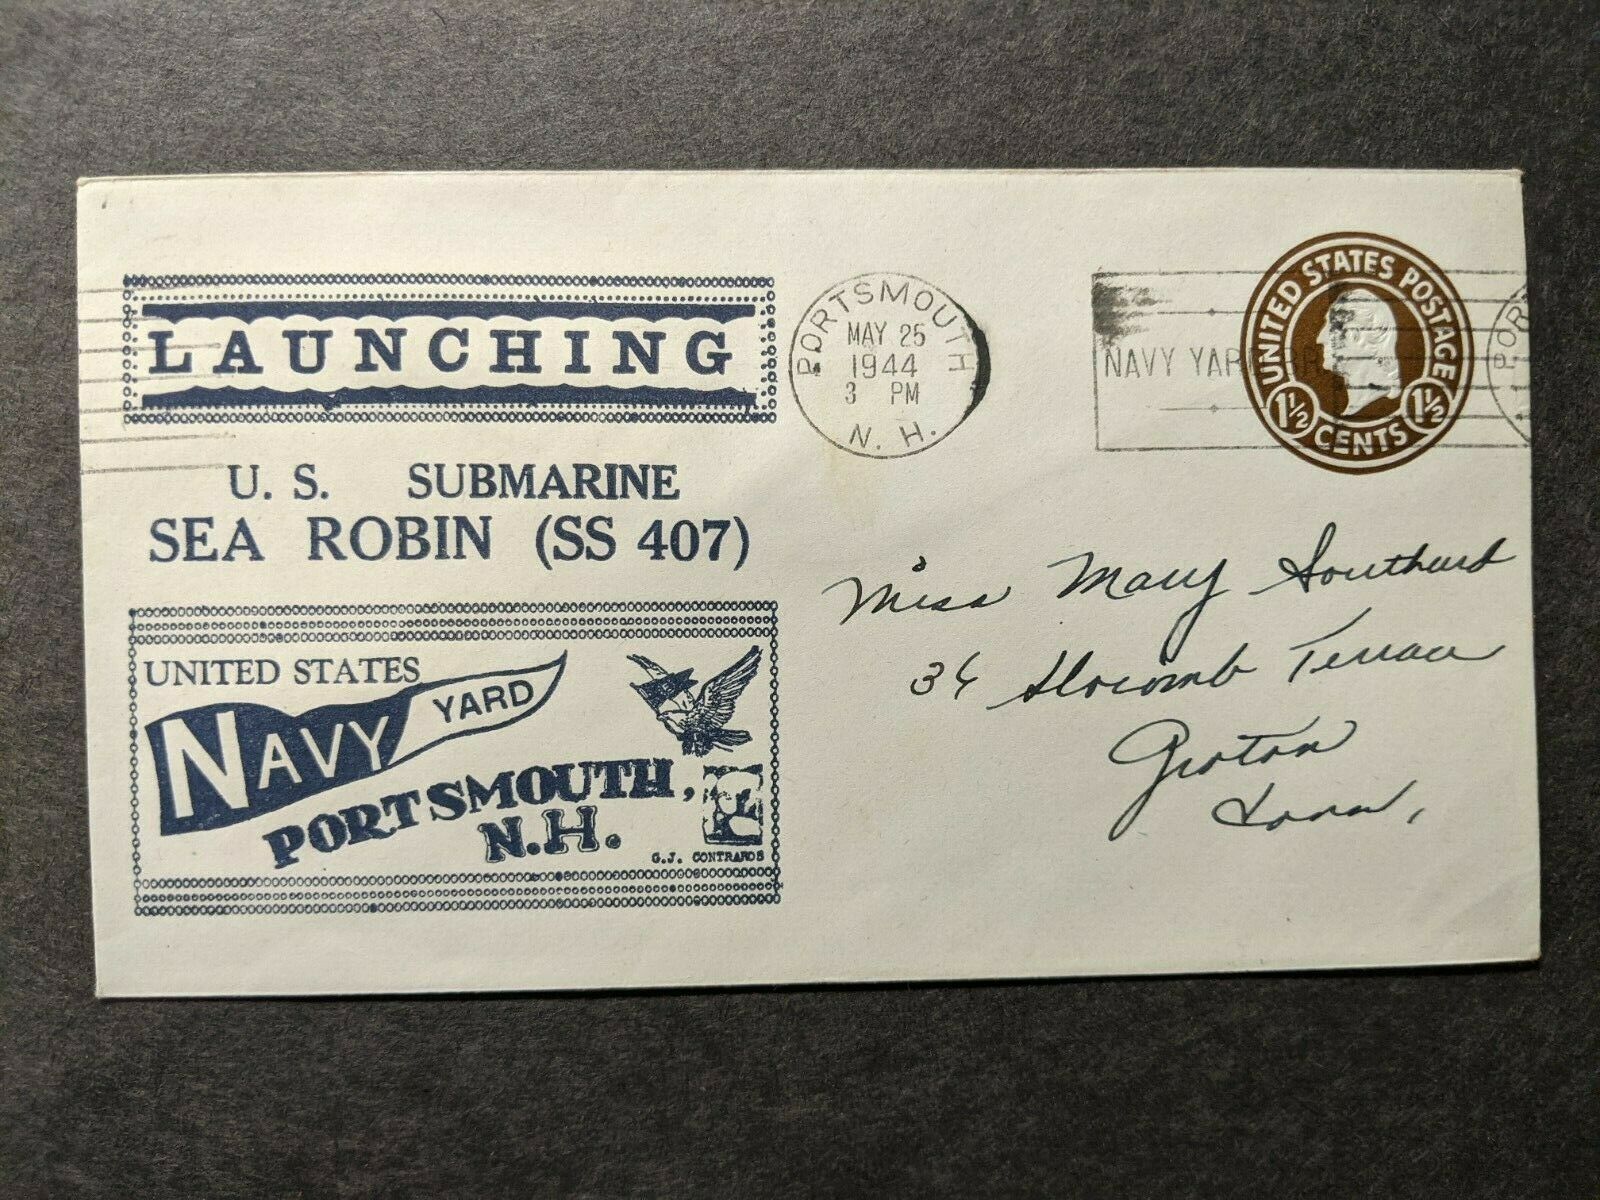 LAUNCHING
U. S. SUBMARINE
SEA ROBIN (SS 407)
UNITED STATES
NAVY YARD
PORTSMOUTH,
N.H.
G.J. CONTRAROS
PORTSMOUTH
MAY 25
1944
3 PM
N. H.
NAVY YARD BR
UNITED STATES POSTAGE
1 1/2 1 1/2
CENTS
POR
Miss Mary Southard
Terrace
Groton
Conn,